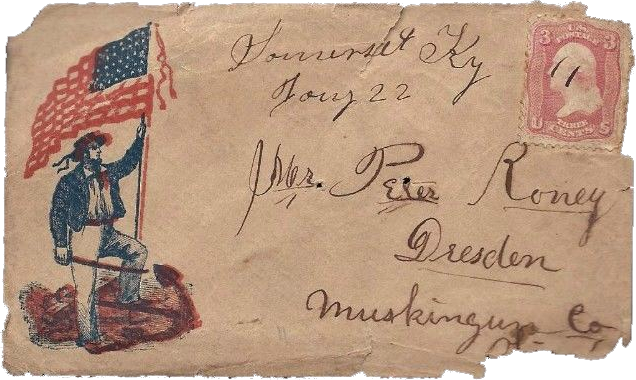 Somerset Ky
Jany 22
3 U.S. POSTAGE 3
U THREE CENTS S
Mr. Peter Roney
Dresden
Muskingum Co